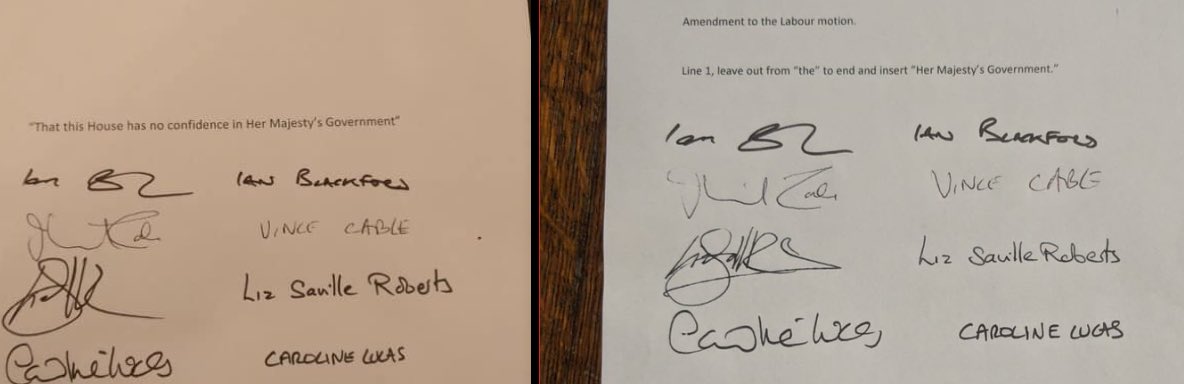 "That this House has no confidence in Her Majesty's Government"
Ian B IAN BLACKFORD
VINCE CABLE
Liz Saville Roberts
Caroline Lucas CAROLINE LUCAS
Amendment to the Labour motion.
Line 1, leave out from "the" to end and insert "Her Majesty's Government."
Ian B IAN BLACKFORD
VINCE CABLE
Liz Saville Roberts
Caroline Lucas CAROLINE LUCAS